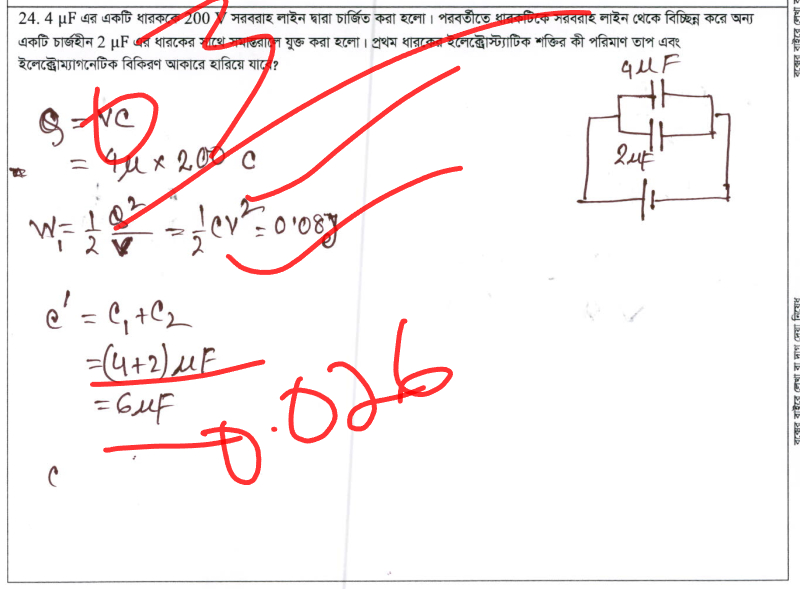 24. 4 μF এর একটি ধারককে 200 V সরবরাহ লাইন দ্বারা চার্জিত করা হলো। পরবর্তীতে ধারকটিকে সরবরাহ লাইন থেকে বিচ্ছিন্ন করে অন্য
একটি চার্জহীন 2 μF এর ধারকের সাথে সমান্তরালে যুক্ত করা হলো। প্রথম ধারকের ইলেক্ট্রোস্ট্যাটিক শক্তির কী পরিমাণ তাপ এবং
ইলেক্ট্রোম্যাগনেটিক বিকিরণ আকারে হারিয়ে যাবে?
4μF
2μF
Q = VC
= 4μ × 200 C
W₁ = 1/2 Q²/V = 1/2 CV² = 0.08J
C' = C₁ + C₂
= (4+2) μF
= 6μF
0.026
C